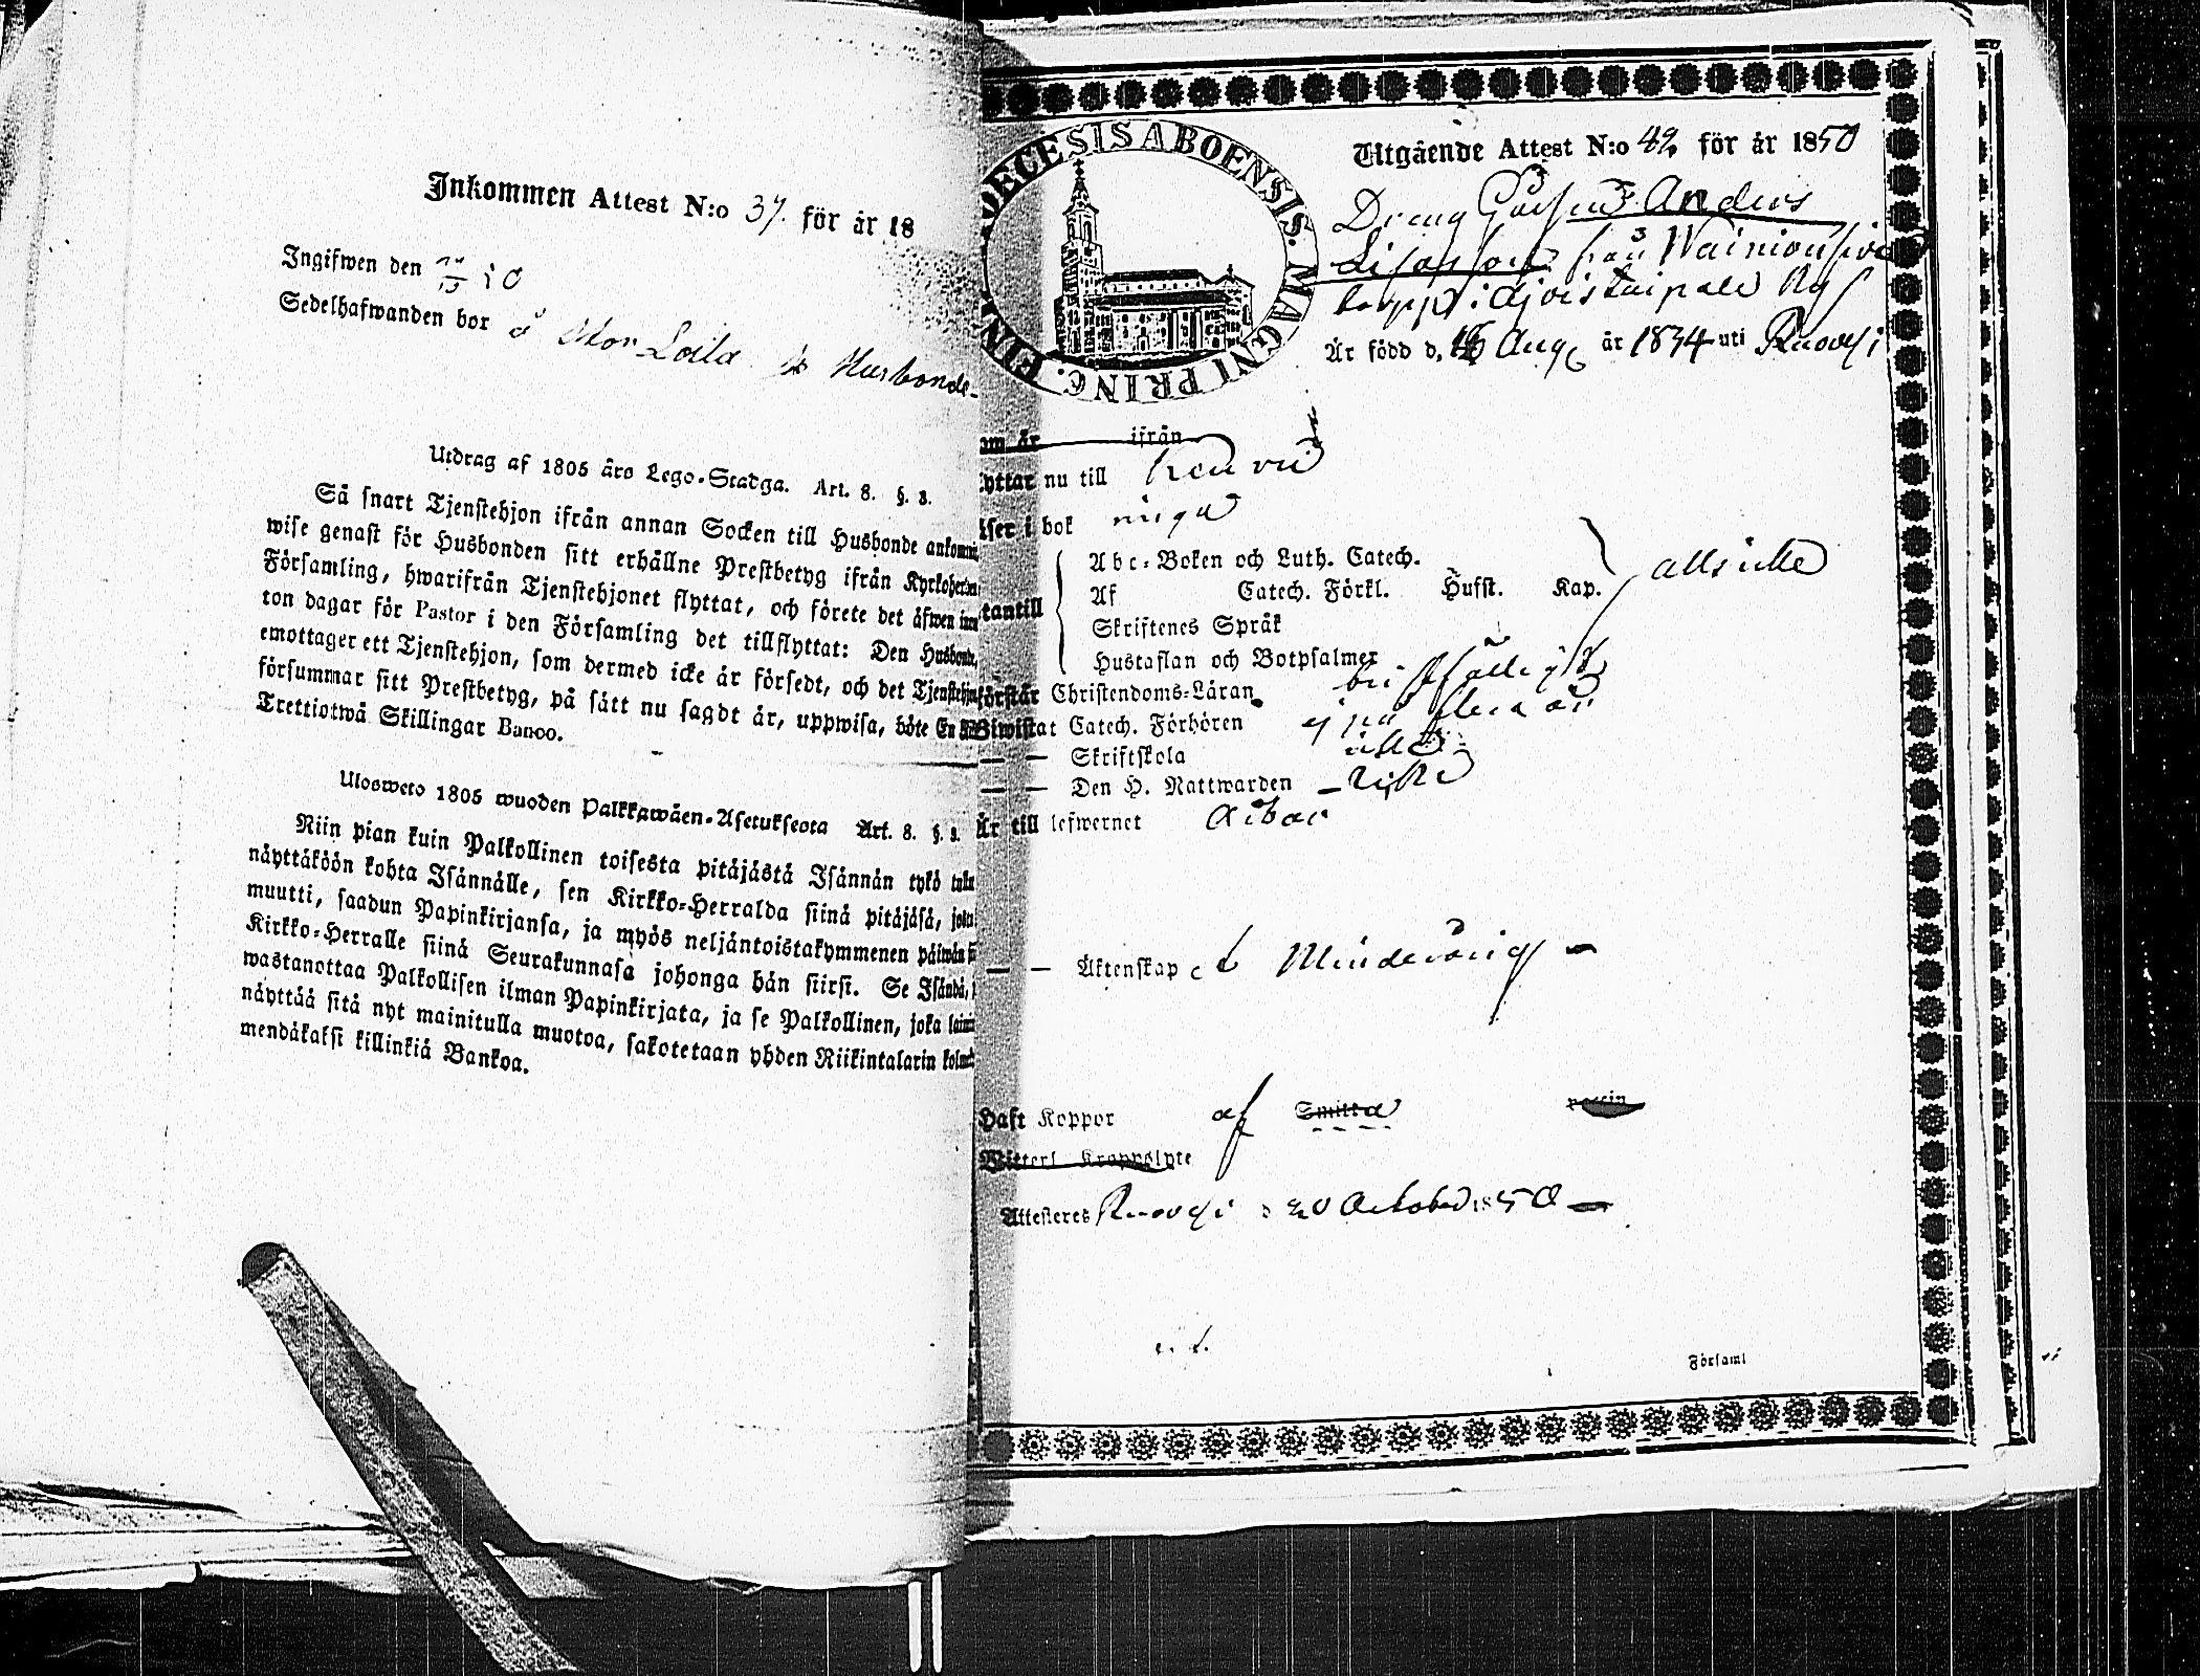 Inkommen Attest N:o 37. för år 18
Ingifwen den 50
Sedelhafwanden bor å Stor Loila Husbonde
Utdrag af 1805 års Lego-Stadga. Art. 8. §. 3.
Så snart Tjenstehjon ifrån annan Socken till Husbonde ankommi
wise genast för Husbonden sitt erhållne Prestbetyg ifrån Kyrkoherden
Församling, hwarifrån Tjenstehjonet flyttat, och förete det äfwen inn
ton dagar för Pastor i den Församling det tillflyttat: Den Husbonde,
emottager ett Tjenstehjon, som dermed icke är försedt, och det Tjenstehjon
försummar sitt Prestbetyg, på sätt nu sagdt är, uppwisa, böte En
Trettiotwå Skillingar Banco.
Ulosweto 1805 wuoden Palkkawäen-Asetuksesta Art. 8. §. 3.
Niin pian kuin Palkollinen toisesta pitäjästä Isännän tykö tule
näyttäköön kohta Isännälle, sen Kirkko-Herralda siinä pitäjäsä, josta
muutti, saadun Papinkirjansa, ja myös neljäntoistakymmenen päiwän
Kirkko-Herralle siinä Seurakunnasa johonga hän siirsi. Se Isändä,
wastanottaa Palkollisen ilman Papinkirjata, ja se Palkollinen, joka
näyttää sitä nyt mainitulla muotoa, sakotetaan yhden Riikintalarin
mendäkaksi killinkiä Bankoa.
DIOECESIS ABOENSIS. MAGNI PRINC. FIN
Utgående Attest N:o 42 för år 1850
Dreng Gustaf Anders
från
torpp i
Är född d. 16 Aug. år 1834 uti Ruovesi
om år ifrån
lyttar nu till
äser i bok
Abc-Boken och Luth. Catech.
Af Catech. Förkl. Hufst. Kap. alls icke
tantill
Skriftenes Språk
Hustaflan och Botpsalmer
förstår Christendoms-Läran bristfälligt
Biwistat Catech. Förhören ej på flera år
— — Skriftskola icke
— — Den H. Nattwarden – icke
Är till lefwernet
— — Äktenskap et Minderårig –
Haft Koppor af Smitta vaccin
Witterl. Kroppslyte
Attesteres Ruovesi d 20 October 1850 –
Församl